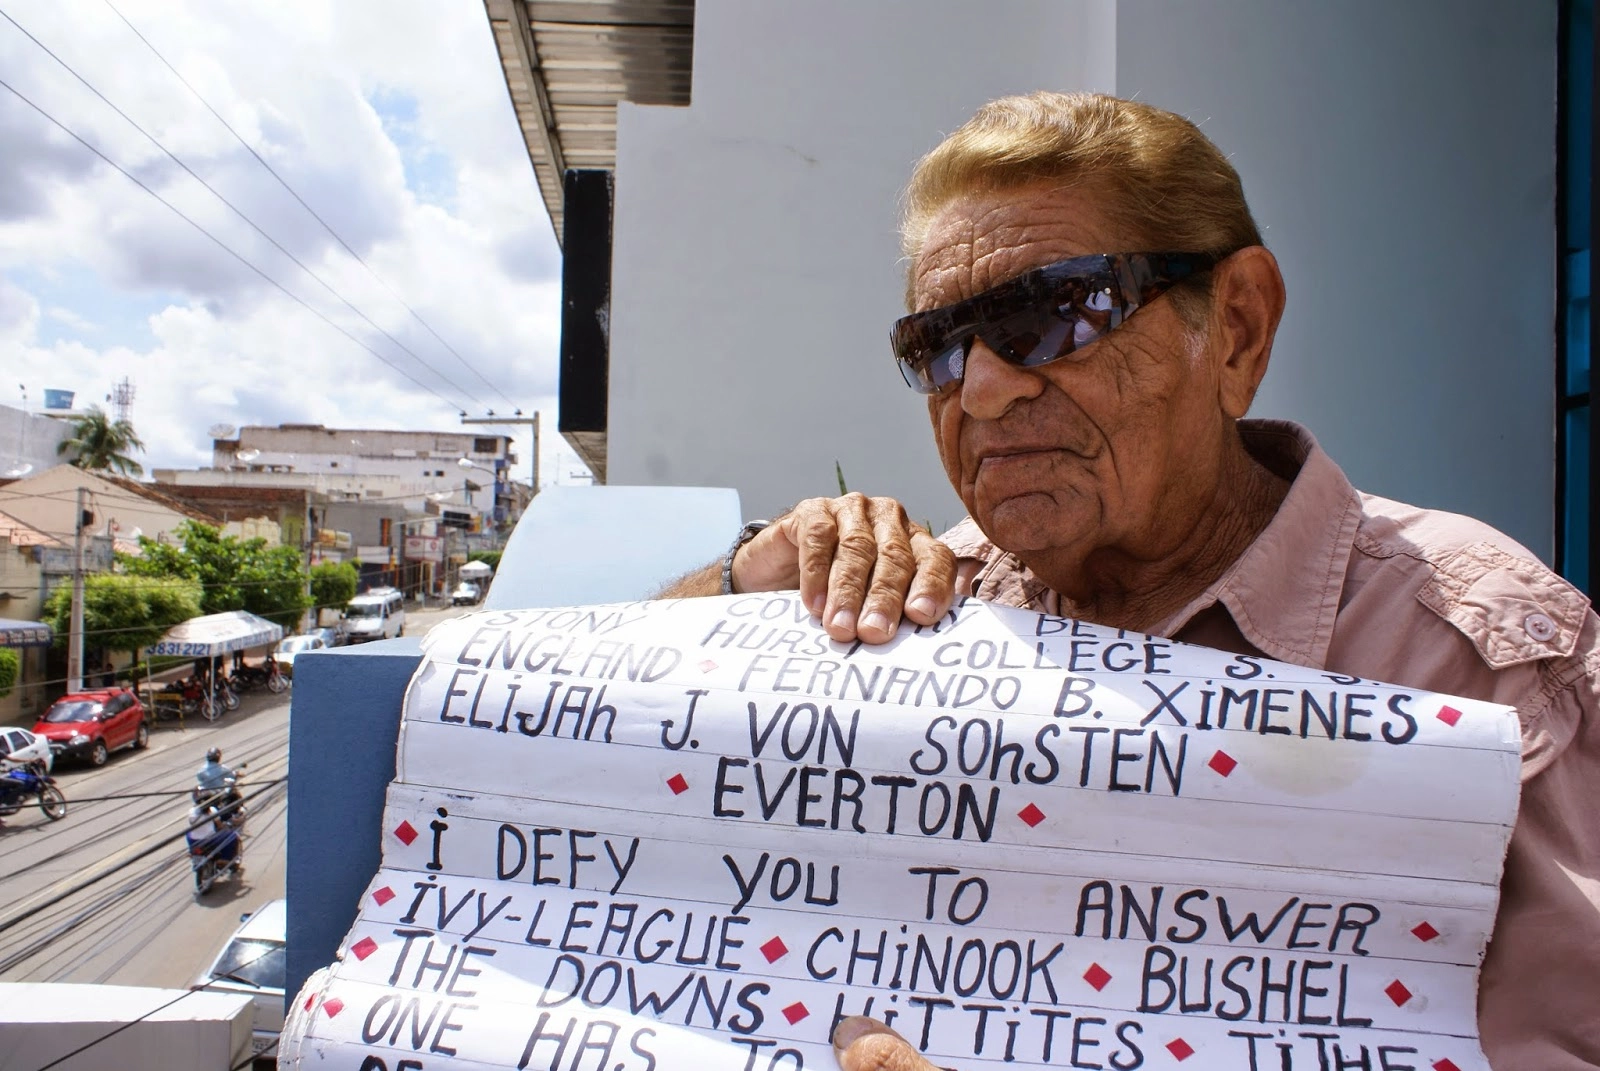 STONY HURST COLLEGE S. J.
ENGLAND ♦ FERNANDO B. XiMENES ♦
ELiJAh J. VON SOhSTEN ♦
♦ EVERTON ♦
♦ i DEFY YOU TO ANSWER ♦
♦ iVY-LEAGUE ♦ CHiNOOK ♦ BUSHEL ♦
♦ THE DOWNS ♦ HiTTiTES ♦ TiTHE ♦
ONE HAS TO
3831 2121